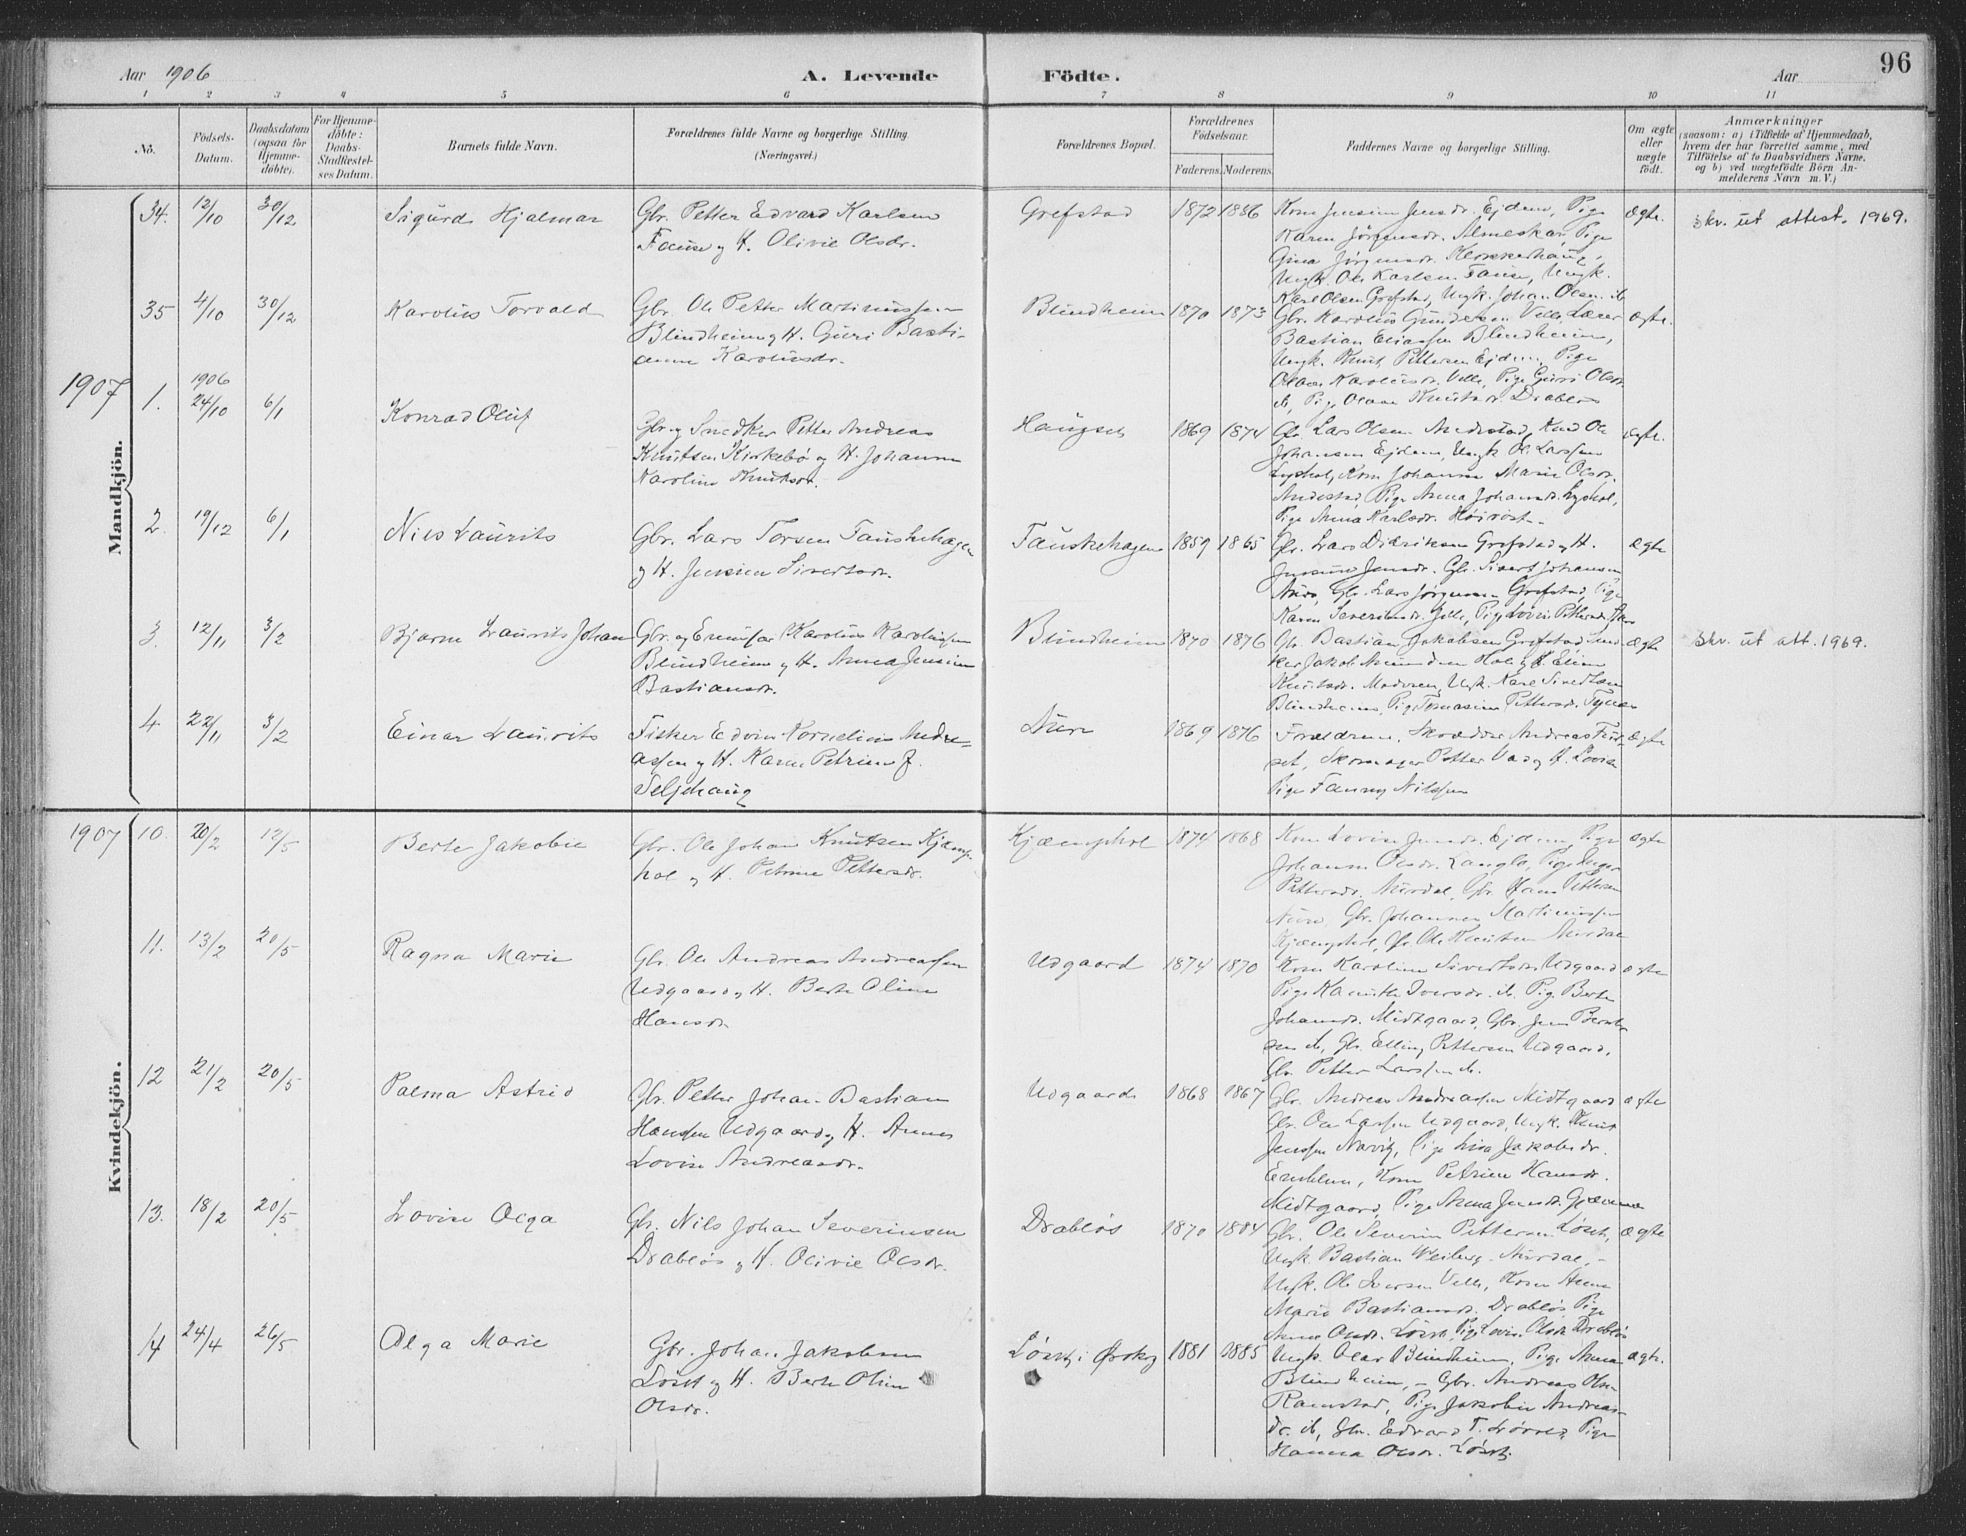 96
Aar 1906
A. Levende
Födte.
Aar
1 2 3 4 5 6 7 8 9 10 11
No.
Födsels-
Datum.
Daabsdatum
(ogsaa for
Hjemme-
döbte).
For Hjemme-
döbte:
Daabs-
Stadfæstel-
ses Datum.
Barnets fulde Navn.
Forældrenes fulde Navne og borgerlige Stilling
(Næringsvei.)
Forældrenes Bopæl.
Forældrenes
Födselsaar.
Faderens. Moderens.
Faddernes Navne og borgerlige Stilling.
Om ægte
eller
uægte
födt.
Anmærkninger
(saasom: a) i Tilfælde af Hjemmedaab,
hvem der har forrettet samme, med
Tilföielse af to Daabsvidners Navne,
og b) ved uægtefödte Börn An-
melderens Navn m. V.)
Mandkjön.
34. 12/10 30/12 Sigurd Hjalmar
Gbr. Petter Edvard Karlsen
Fause og H. Olivie Olsdr.
Grefstad 1872 1886
Kone Jensine Jensdr. Ejdem, Pige
Karen Jörgensdr. Almeskar, Pige
Gina Jörgensdr. Klokkerhaug,
Ungk. Ole Karlsen Fause, Ungk.
Karl Olsen Grefstad, Ungk. Johan Olsen ib
ægte.
skv. ut attest. 1969.
35 4/10 30/12 Karolus Torvald
Gbr. Ole Petter Martinussen
Blindheim og H. Guri Basti-
anne Karolusdr.
Blindheim 1870 1873
Gbr. Karolus Gundersen Velle, Lærer
Bastian Eliassen Blindheim,
Ungk. Knut Pettersen Ejdem, Pige
Olave Karolusdr. Velle, Pige Guri Olsdr.
ib, Pige Olave Knutsdr. Drabløs
ægte.
1907
1. 1906 24/10 6/1 Konrad Oluf
Gbr. og Snedker Petter Andreas
Knutsen Kirkebö og H. Johanne
Karoline Knutsdr.
Haugset 1869 1874
Gbr. Lars Olsen Andestad, Knud Ole
Johansen Ejdem, Ungk. Ole Larssen
Lyshol, Kone Johanne Marie Olsdr.
Andestad, Pige Anna Johansdr. Lyshol,
Pige Anna Karlsdr.
ægte.
2. 19/12 6/1 Nils Laurits
Gbr. Lars Torsen Fauskehagen
og H. Jensine Sivertsdr.
Fauskehagen 1859 1865
Gbr. Lars Didriksen Grefstad og H.
Jensine Jensdr. Gbr. Sivert Johansen
Aure, Gbr. Lars Jörgensen Grefstad, Pige
Karen Severinsdr. Pige Lovise Pettersdr.
ægte
3. 12/11 3/2 Bjarne Laurits Johan
Gbr. og Karolus Karolussen
Blindheim og H. Anna Jensine
Bastiansdr.
Blindheim 1870 1876
Gbr. Bastian Jakobsen Grefstad, Sned-
ker Jakob Hole, K. Eline
Knutsdr. Ungk. Karl Sivertsen
Blindheim, Pige Tomasine Pettersdr.
ægte
skv. ut att. 1969.
4. 22/11 3/2 Einar Laurits
Fisker Edvin Kornelius Andre-
assen og H. Karen Petrine J.
Seljehaug
Aure 1869 1876
Forældrene, Skrædder Andreas Fur-
set, Skomager Petter Vad og H. Lovise
Pige Fanny Nilssen
ægte
Kvindekjön.
1907 10. 20/2 12/5 Berte Jakobie
Gbr. Ole Johan Knutsen Kjæmp-
hol og H. Petrine Pettersdr.
Kjæmphol 1874 1868
Kone Lovise Jensdr. Ejdem, Pige
Johanne Olsdr. Langlo, Pige Inger
Pettersdr. Aurdal, Gbr. Hans Pettersen
Aure, Gbr. Johannes Martinussen
Kjæmphol, Gbr. Ole Knutsen Aurdal
ægte
11. 13/2 20/5 Ragna Marie
Gbr. Ole Andreas Andreassen
Udgaard og H. Berte Oline
Hansdr.
Udgaard 1874 1870
Kone Karoline Sivertsdr. Udgaard
Pige Kanutte Iversdr. ib. Pige Berte
Johansdr. Midtgaard, Gbr. Jens Bernt-
sen ib, Gbr. Elling Pettersen Udgaard,
Gbr. Petter Larssen ib.
ægte
12 21/2 20/5 Palma Astrid
Gbr. Petter Johan Bastian
Hansen Udgaard og H. Anne
Lovise Andreasdr.
Udgaard 1868 1867
Gbr. Andreas Andreassen Midtgaard
Gbr. Ole Larssen Udgaard, Ungk. Knut
Jenssen Pige Lina Jakobsdr.
Kone Petrine Hansdr.
Midtgaard, Pige Anna Jensdr.
ægte
13. 18/2 20/5 Lovise Olga
Gbr. Nils Johan Severinsen
Drabløs og H. Olivie Olsdr.
Drabløs 1870 1884
Gbr. Ole Severin Pettersen Løset,
Ungk. Bastian Weiberg Aurdal,
Ungk. Ole Iversen Velle, Kone Anne
Marie Bastiansdr. Drabløs Pige
Anne Olsdr. Løset, Pige Lovise Olsdr. Drabløs
ægte
14 24/4 26/5 Olga Marie
Gbr. Johan Jakobsen
Løset og H. Berte Oline
Olsdr.
Løset i Ørskog 1881 1885
Ungk. Olav Blindheim, Pige Anna
Blindheim, – Gbr. Andreas Ols.
Ramstad, Pige Jakobie Andreas-
dr. ib, Gbr. Edvard T. Pige
Hanna Olsdr. Løset
ægte.